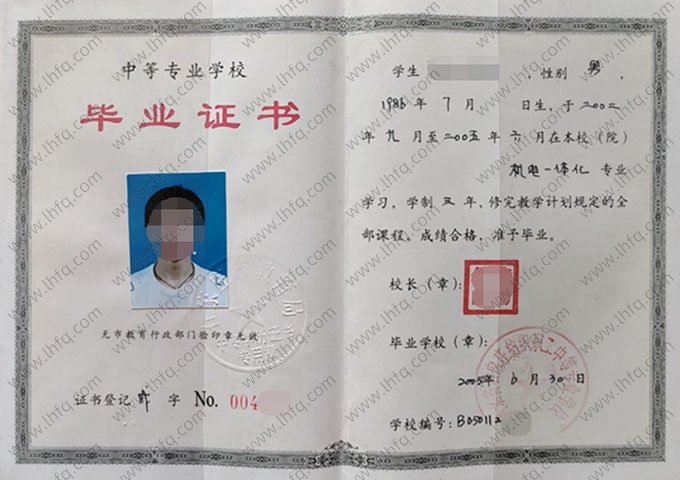 中等专业学校
毕业证书
无市教育行政部门验印章无效
证书登记 字 No. 004
学生 ,性别 男,
1986年 7月 日生,于二〇〇二
年 九 月至二〇〇五年 六 月在本校(院)
机电一体化 专业
学习,学制 三 年,修完教学计划规定的全
部课程,成绩合格,准予毕业。
校长(章):
毕业学校(章):
2005年 6 月 30 日
学校编号:B050112
www.lhfq.com